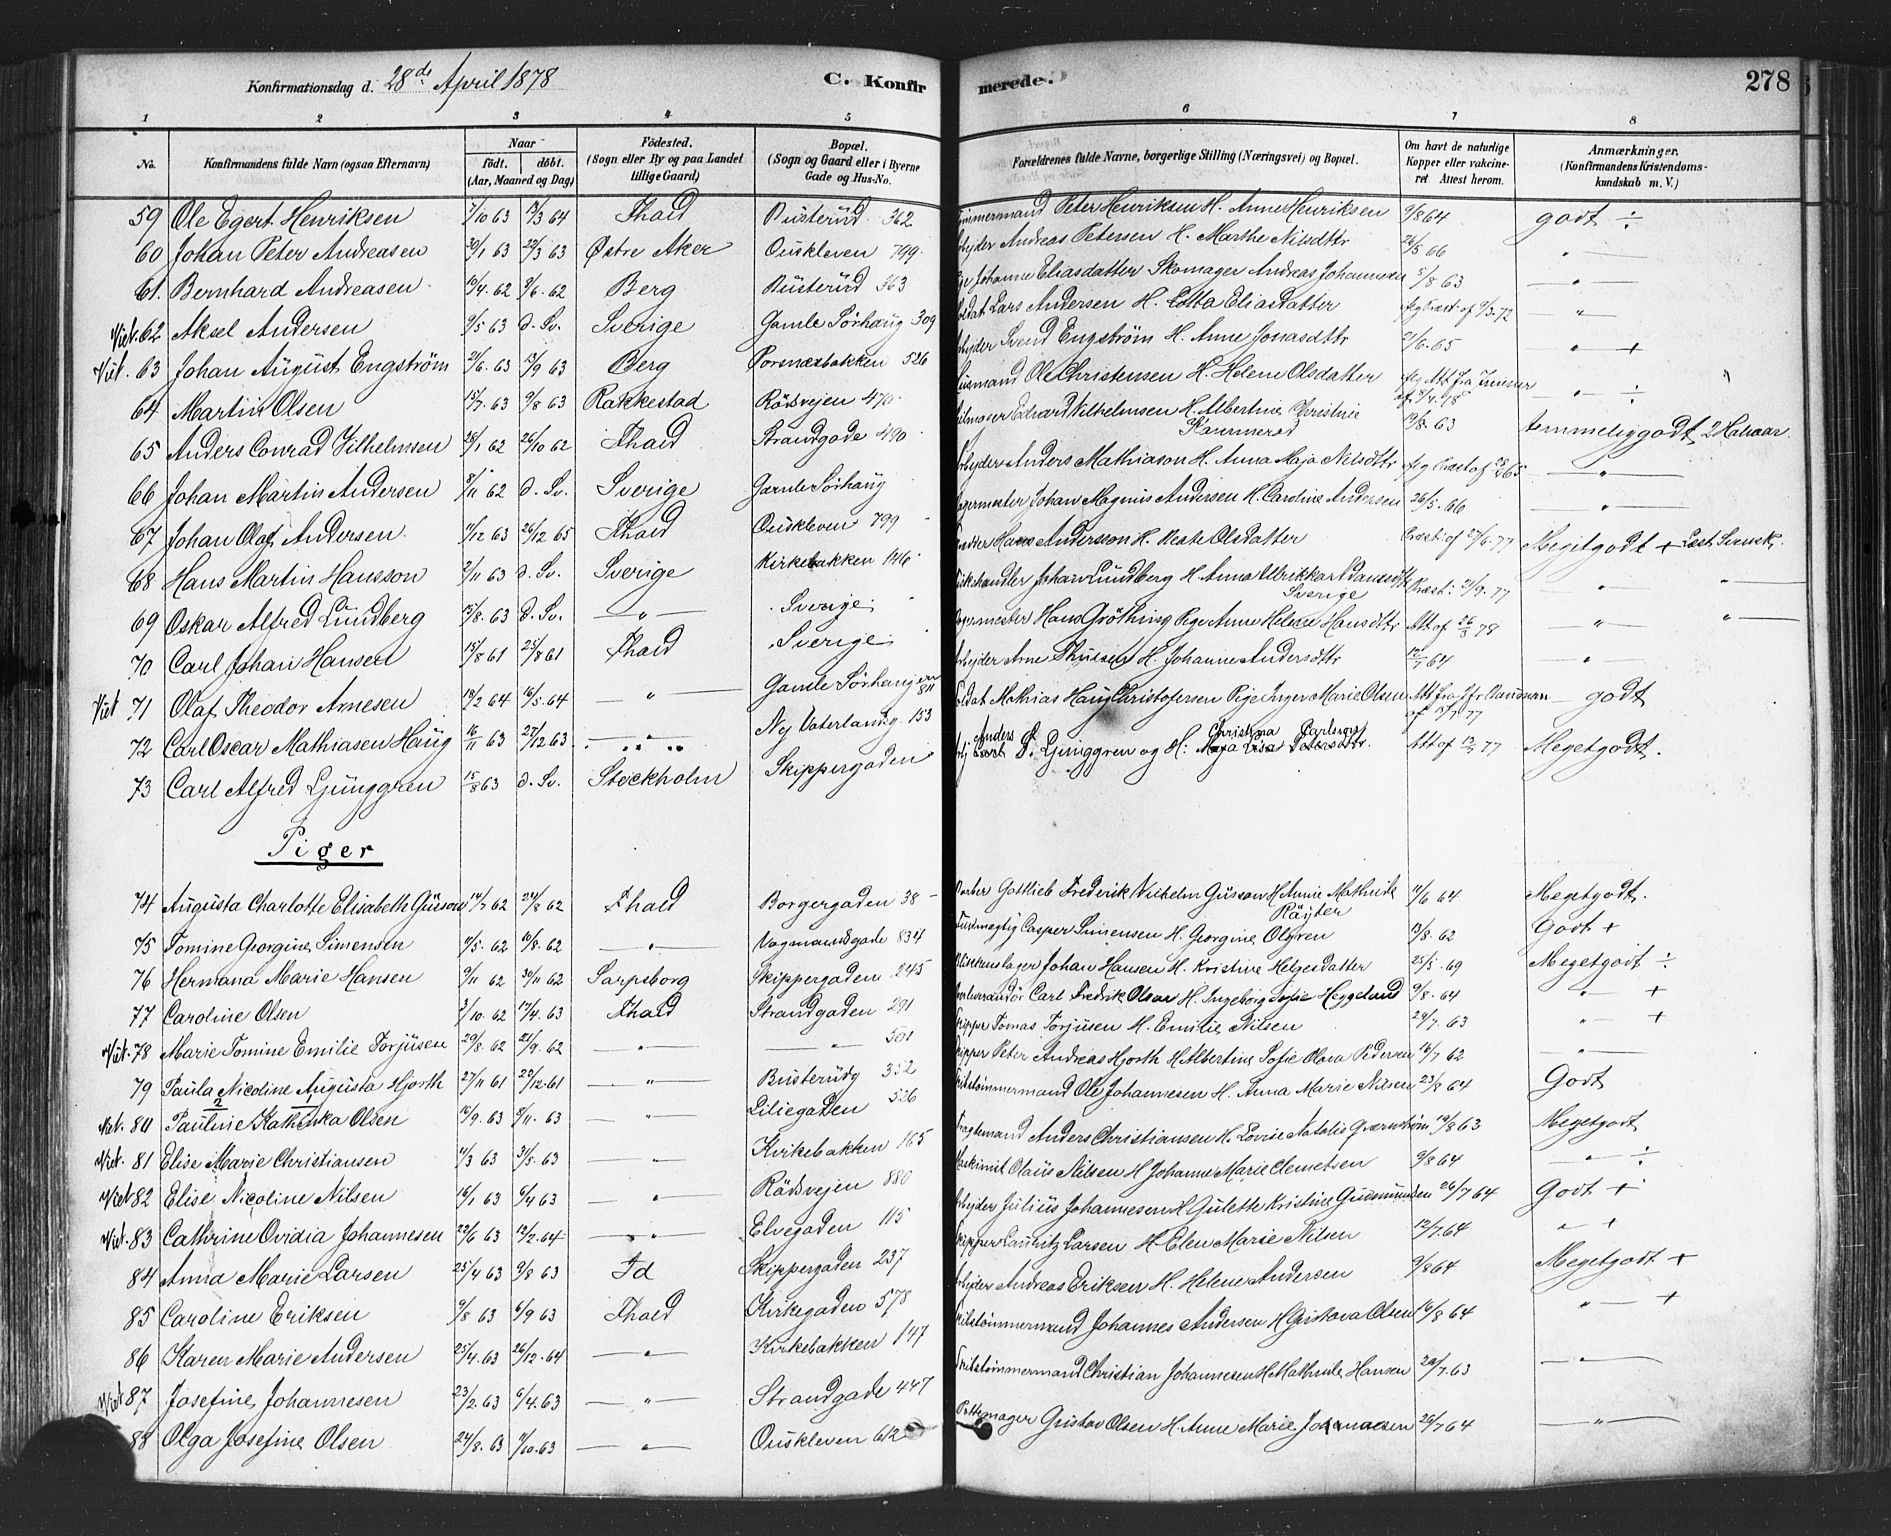 Konfirmationsdag d. 28de April 1878
C. Konfirmerede.
278
1 2 3 4 5 6 7 8
No. Konfirmandens fulde Navn (ogsaa Efternavn) Naar født. døbt. (Aar, Maaned og Dag) Födested. (Sogn eller By og paa Landet tillige Gaard) Bopæl. (Sogn og Gaard eller i Byerne Gade og Hus-No. Forældrenes fulde Navne, borgerlige Stilling (Næringsvei) og Bopæl. Om havt de naturlige Kopper eller vakcineret Attest herom. Anmærkninger. (Konfirmandens Kristendomskundskab m. V.)
59 Ole Egert Henriksen 7/10 63 /3 64 Fhald Busterud 362 Peter Henriksen H. Anne Henriksen 9/8 64 godt ÷
60 Johan Peter Andreasen 30/1 63 22/3 63 Østre Aker Ouskleven 799 Andreas Petersen H. Marthe Nilsdttr 26/5 66 "
61 Bernhard Andreasen 10/4 62 9/6 62 Berg Busterud 363 Johanne Eliasdatter Skomager Andreas Johannesen 5/8 63 "
Viet. 62 Aksel Andersen 9/5 63 d. Sv. Sverige Gamle Sørhaug 309 Lars Andersen H. Lotta Eliasdatter 9/3 72 "
Viet. 63 Johan August Engström 21/6 63 13/9 63 Berg Porsnæsbakken 526 Svend Engström H. Anne Jonasdttr 21/6 65 " +
64 Martin Olsen 15/7 63 9/8 63 Rakkestad Rödsvejen 470 Ole Christensen H. Helene Olsdatter " ÷
65 Anders Conrad Vilhelmsen 28/1 62 26/10 62 Fhald Strandgade 490 Edvard Wilhelmsen H. Albertine Christine Kammerød 19/8 63 temmeliggodt 2 Halvaar
66 Johan Martin Andersen 8/11 62 d. Sv. Sverige Gamle Sørhaug Anders Mathiason H. Anna Maja Nilsdttr 65 "
67 Johan Olaf Andersen 11/12 63 26/12 65 Fhald Ouskleven 799 Johan Magnus Andersen H. Caroline Andersen 26/5 66 "
68 Hans Martin Hansson 2/11 63 d. Sv. Sverige Kirkebakken 146 Andersson H. Beate Olsdatter 27/6 77 Megetgodt + Læst Svensk
69 Oskar Alfred Lundberg 15/8 63 d. Sv. " Sverige Johan Lundberg H. Anna Ulrikka Sverige Præst: 21/9 77 " "
70 Carl Johan Hansen 15/8 61 25/8 61 Fhald Sverige Hans Gröthing Pige Anne Helene Hansdttr Att af 26/3 78 " "
Viet 71 Olaf Theodor Arnesen 18/2 64 16/5 64 " Gamle Sørhaugen 811 Arne H. Johanne Andersdttr 12/7 64 "
72 Carl Oscar Mathiasen Haug 16/11 63 27/12 63 " Ny Vaterlandsg. 153 Mathias Haug Christofersen Pige Inger Marie Olsen 77 godt
73 Carl Alfred Ljunggren 15/8 63 d. Sv. Stockholm Skippergaden Anders P. Ljunggren og H: Christina Carlsn Att af 77 Megetgodt.
Piger
74 Augusta Charlotte Elisabeth Güssow 14/7 62 24/8 62 Fhald Borgergaden 38 Gottlieb Frederik Vilhelm Güssow H Annie Mathilde Räyter 11/6 64 Megetgodt.
75 Tomine Georgine Simensen 11/5 62 10/8 62 " Vognmandsgade 834 Casper Simensen H. Georgine Olgren 13/8 62 Godt +
76 Hermana Marie Hansen 9/11 62 30/11 62 Sarpsborg Skippergaden 245 Johan Hansen H. Kristine Helgesdatter 25/5 69 Megetgodt ÷
77 Caroline Olsen 3/10 62 17/4 63 Fhald Strandgaden 291 Carl Fredrik Olsen H. Ingeborg Sofie Heggelund 9/8 64 " +
Viet. 78 Marie Tomine Emilie Torjusen 20/8 62 21/9 62 " " 501 Tomas Torjusen H. Emilie Nilsen 24/7 63 " +
79 Paula Nicoline Augusta Hjorth 27/11 61 29/12 61 " Busterudg 352 Peter Andreas Hjorth H Albertine Sofie Olava Pedersen 16/7 62 "
Viet. 80 Pauline Kathinka Olsen 12/9 63 8/11 63 " Liliegaden 526 Ole Johannesen H. Anna Marie Nilsen 23/8 64 Godt
Viet. 81 Elise Marie Christiansen 11/3 63 31/5 63 " Kirkebakken 165 Anders Christiansen H. Lovise Natalie 19/8 63 Megetgodt
Viet 82 Elise Nicoline Nilsen 16/1 63 6/4 63 " Rödsvejen 880 Olaus Nilsen H Johanne Marie Clemetsen 9/8 64 " ÷
Viet. 83 Cathrine Ovidia Johannesen 22/6 63 12/2 64 " Elvegaden 115 Julius Johannesen H Gulette Kristine Gudmundsen 26/7 64 Godt +
84 Anna Marie Larsen 25/4 63 9/8 63 Id Skippergaden 237 Lauritz Larsen H Elen Marie Nilsen 12/7 64 " +
85 Caroline Eriksen 9/8 63 6/9 63 Fhald Kirkegaden 578 Andreas Eriksen H. Helene Andersen 9/8 64 Megetgodt +
86 Karen Marie Andersen 25/4 63 26/12 64 " Kirkebakken 147 Johannes Andersen H Gustava Olsen 16/8 64 " +
Viet 87 Josefine Johannesen 23/2 63 6/4 63 " Strandgade 447 Christian Johannesen H Mathilde Hansen 20/7 63 "
88 Olga Josefine Olsen 24/8 63 7/10 63 " Ouskleven 612 Gustav Olsen H. Anne Marie Johannesen 26/7 64 "